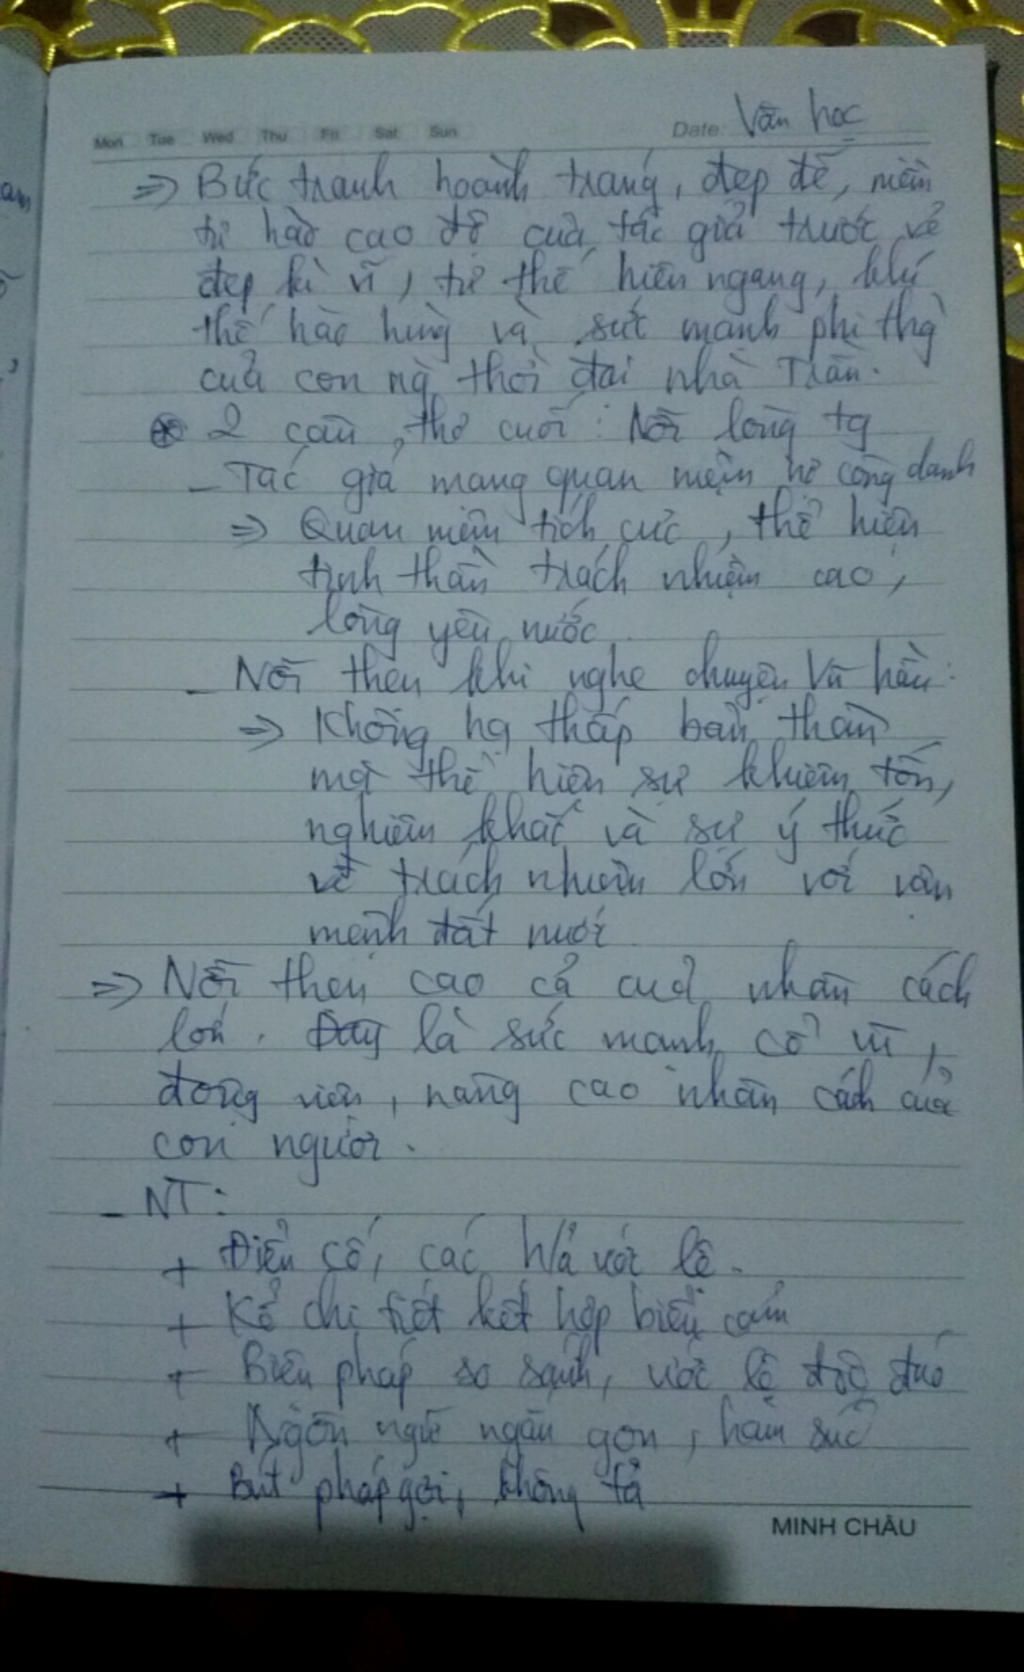 Mon Tue Wed Thu Fri Sat Sun Date: Văn học
=> Bức tranh hoành tráng, đẹp đẽ, niềm
tự hào cao độ của tác giả trước vẻ
đẹp kì vĩ, tư thế hiên ngang, khí
thế hào hùng và sức mạnh phi thg
của con ng thời đại nhà Trần.
2 câu thơ cuối: Nỗi lòng tg
- Tác giả mang quan niệm nợ công danh
=> Quan niệm tích cực, thể hiện
tinh thần trách nhiệm cao,
lòng yêu nước
- Nỗi thẹn khi nghe chuyện Vũ hầu:
=> Không hạ thấp bản thân
mà thể hiện sự khiêm tốn,
nghiêm khắc và sự ý thức
về trách nhiệm lớn với vận
mệnh đất nước
=> Nỗi thẹn cao cả của nhân cách
lớn. Đây là sức mạnh cổ vũ,
động viên, nâng cao nhân cách của
con người.
- NT:
+ Điển cố, các h/ả ước lệ.
+ Kể chi tiết kết hợp biểu cảm
+ Biện pháp so sánh, ước lệ độc đáo
+ Ngôn ngữ ngắn gọn, hàm súc
+ Bút pháp gợi, không tả
MINH CHÂU